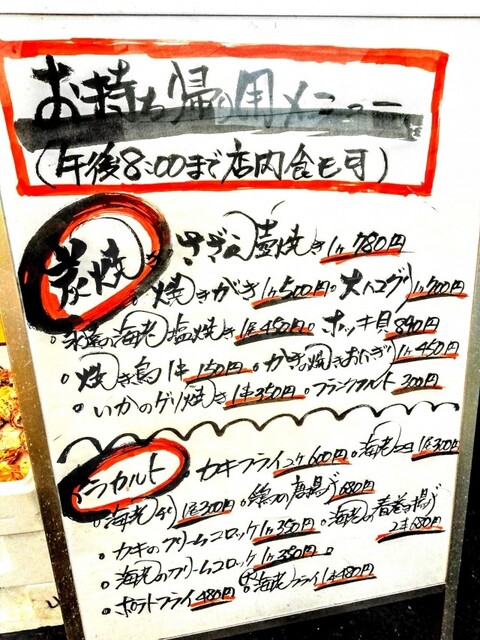 お持ち帰り用メニュー
(午後8:00まで店内食も可)
炭焼 さざえ壺焼き1ケ780円
焼きがき1ケ500円 大ハマグリ1ケ700円
の海老塩焼き1尾450円 ホッキ貝890円
焼き鳥1本150円 かきの焼きおにぎり1ケ450円
いかのゲソ焼き1本350円 フランクフルト300円
アラカルト カキフライ2ケ600円 海老 1尾300円
海老 1尾300円 鶏の唐揚げ680円
カキのクリームコロッケ1ケ350円 海老の春巻揚げ
2本680円
海老のクリームコロッケ1ケ380円
ポテトフライ480円 大海老フライ1本480円